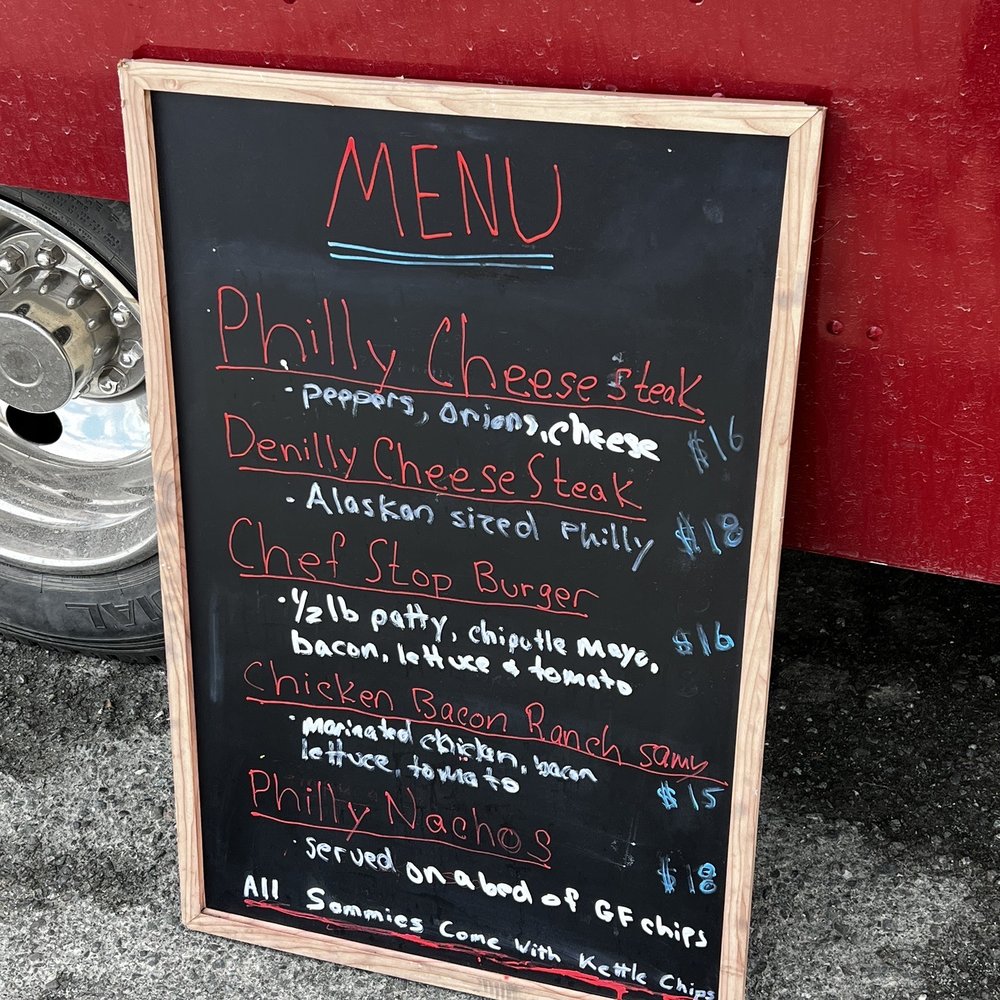 MENU
Philly Cheese Steak
• peppers, onions, cheese $16
Denilly Cheese Steak
• Alaskan sized Philly $18
Chef Stop Burger
• 1/2 lb patty, chipotle mayo, $16
bacon, lettuce & tomato
Chicken Bacon Ranch samy
• marinated chicken, bacon
lettuce, tomato $15
Philly Nachos
• served on a bed of GF chips $18
All Sammies Come With Kettle Chips